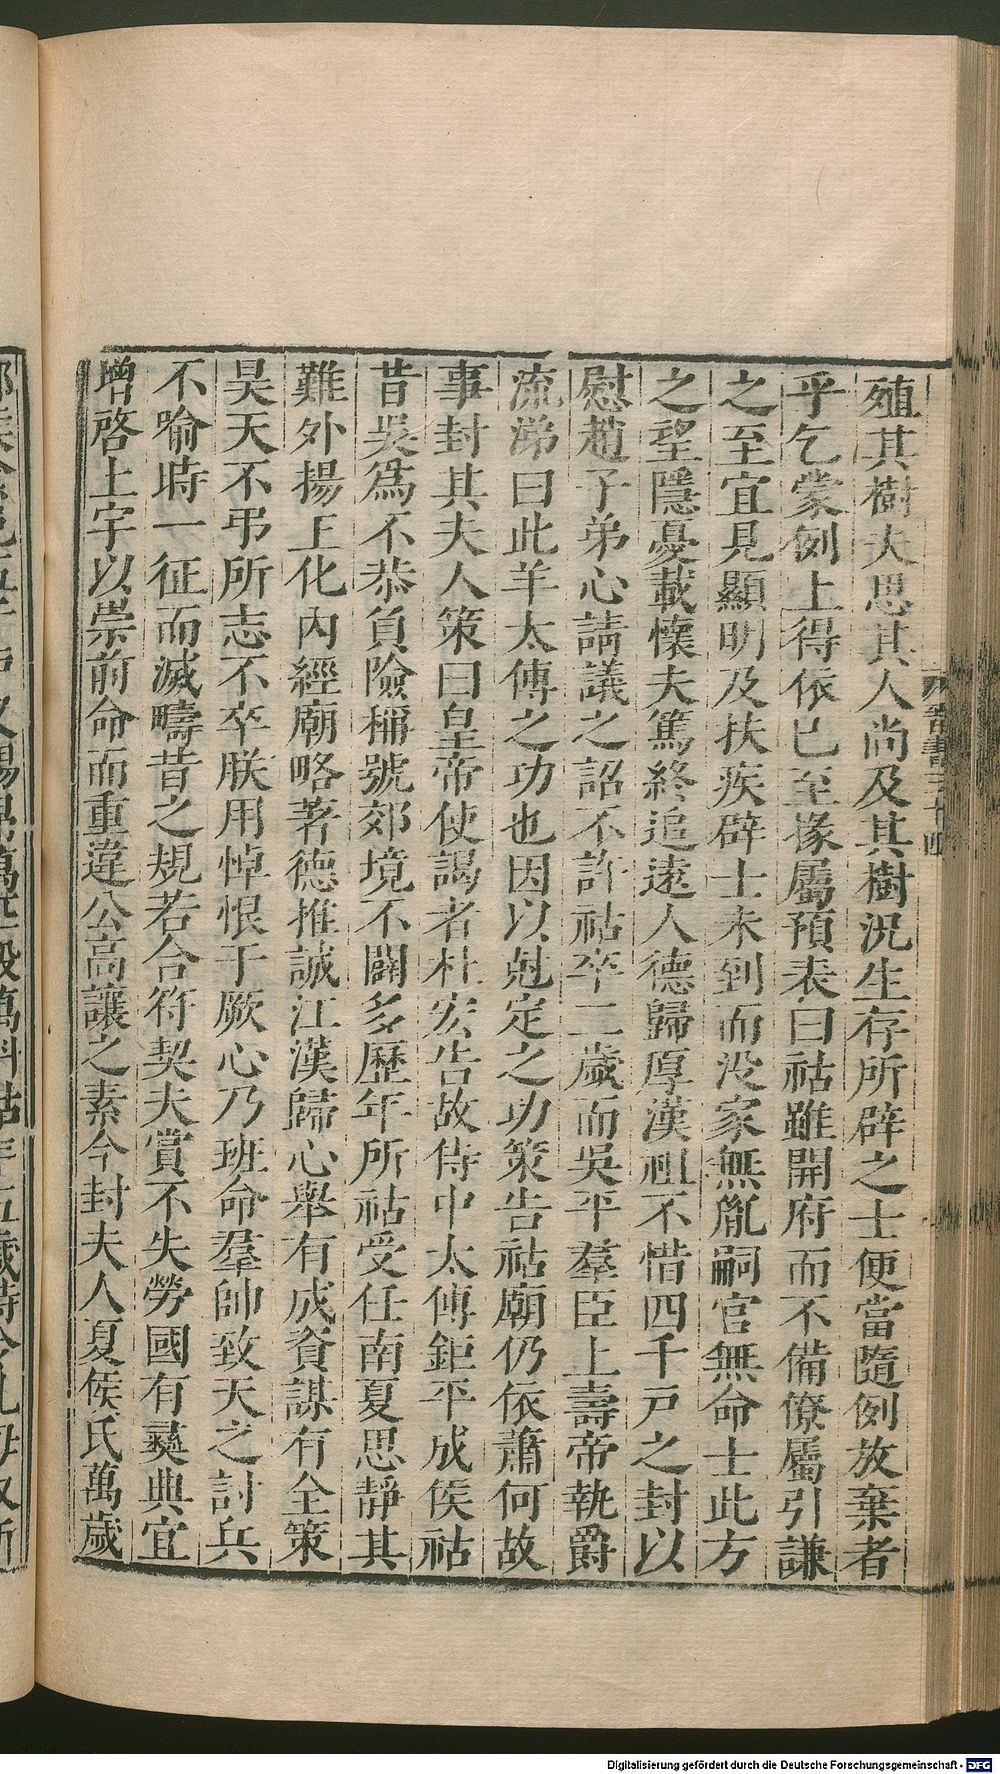 殖其樹夫思其人尚及其樹況生存所辟之士便當隨例放棄者
乎乞蒙例上得依已至掾屬預表曰祜雖開府而不備僚屬引謙
之至宜見顯明及扶疾辟士未到而没家無胤嗣官無命士此方
之望隱憂載懷夫篤終追遠人德歸厚漢祖不惜四千戸之封以
慰趙子弟心請議之詔不許祜卒二歲而吳平羣臣上壽帝執爵
流涕曰此羊太傅之功也因以尅定之功策告祜廟仍依蕭何故
事封其夫人策曰皇帝使謁者杜宏告故侍中太傅鉅平成侯祜
昔吳爲不恭負險稱號郊境不闢多歷年所祜受任南夏思靜其
難外揚王化内經廟略著德推誠江漢歸心舉有成資謀有全策
昊天不弔所志不卒朕用悼恨于厥心乃班命羣帥致天之討兵
不喻時一征而滅疇昔之規若合符契夫賞不失勞國有彝典宜
增啓土宇以崇前命而重違公高讓之素今封夫人夏侯氏萬歲
晉書三十四
Digitalisierung gefördert durch die Deutsche Forschungsgemeinschaft - DFG